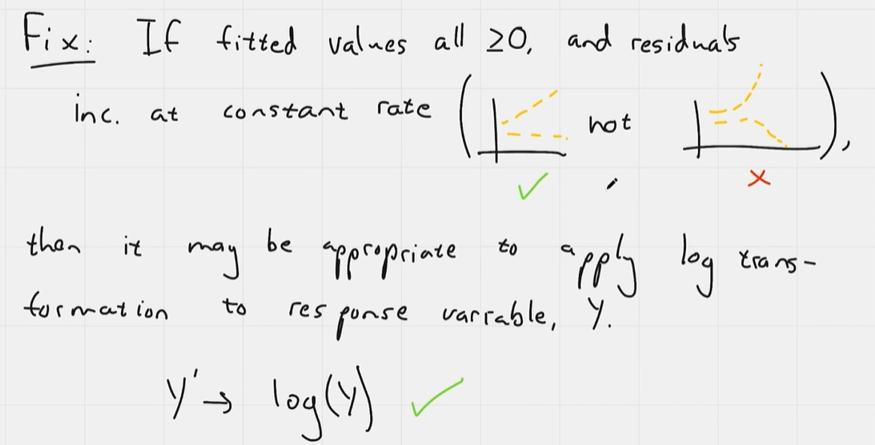 Fix: If fitted values all ≥0, and residuals
inc. at constant rate ( not ),
✓ ✗
then it may be appropriate to apply log trans-
formation to response varrable, Y.
Y' → log(Y) ✓